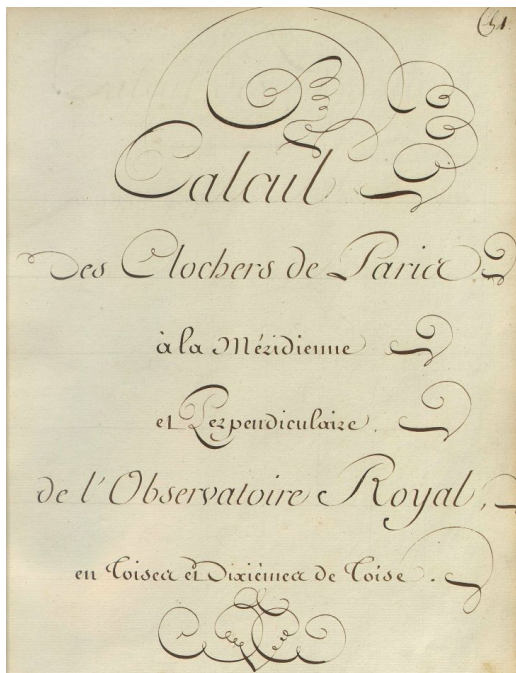 51.
Calcul
Des Clochers de Paris
à la Méridienne
et Perpendiculaire.
de l'Observatoire Royal,
en Toises et Dixièmes de Toise.